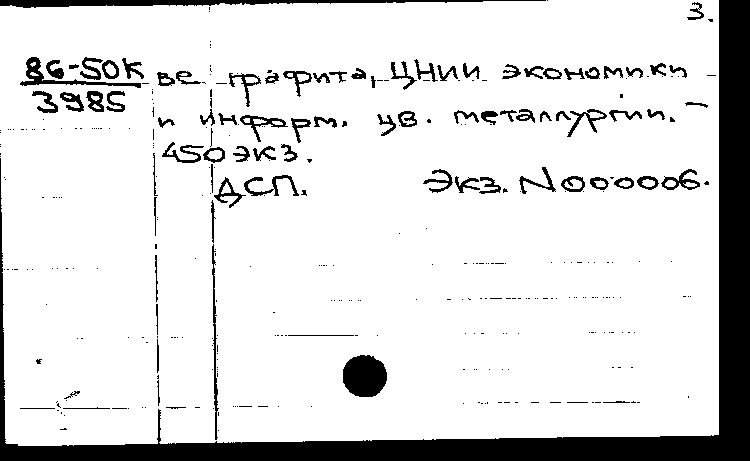 3.
86-50К ве графита, ЦНИИ экономики
3985
и информ. цв. металлургии. –
450 экз.
ДСП. Экз. N 000006.